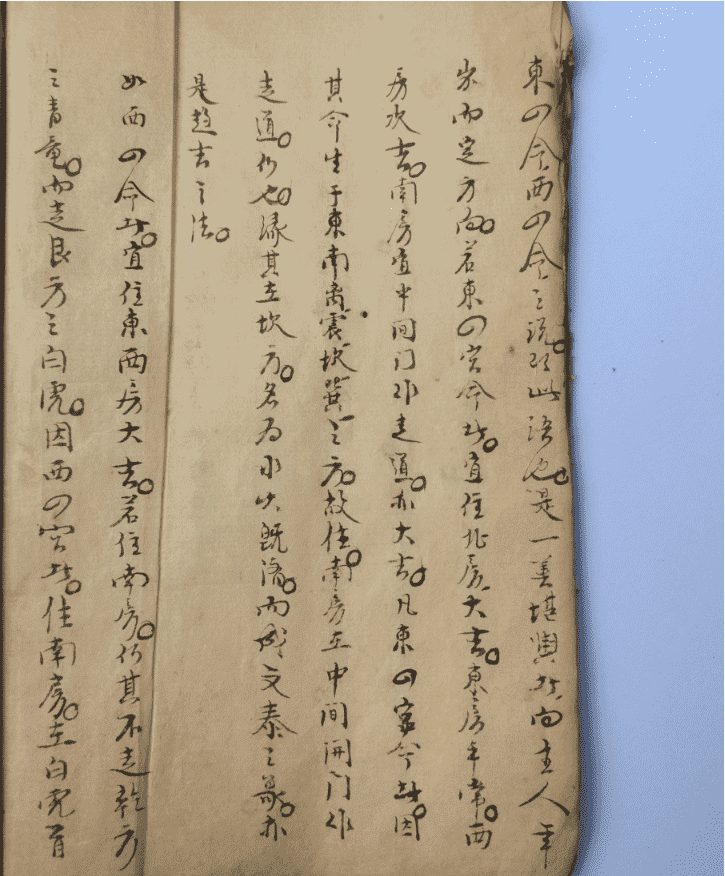 東四命西四命之説。即此語也。是一善堪輿者向主人年
安而定方向。若東四宮命者。宜住北房大吉。東房平常。西
房次吉。南房宜中间门作走道。亦大吉。凡東四宮命者。因
其命生于東南离震坎巽之方。故住南房在中间開门作
走道。何也。缘其在坎方。名为水火既济。而成交泰之象。亦
是趋吉之法。
如西四命者。宜住東西房大吉。若住南房。何其不走乾方
之青竜。而走艮方之白虎。因西四宮者。住南房。在白虎首